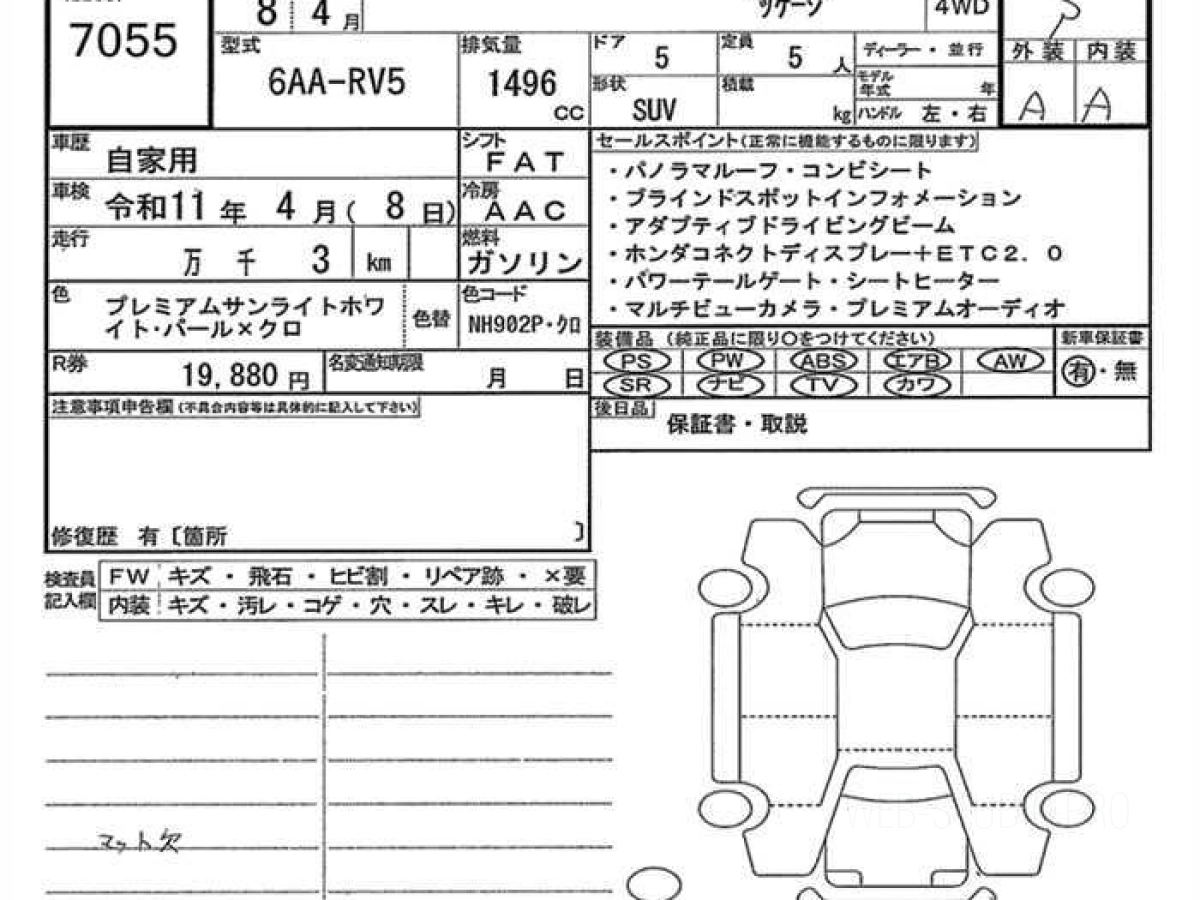 8 4 月 4WD
7055
型式 6AA-RV5
排気量 1496 CC
ドア 5
定員 5 人
ディーラー・並行
モデル年式 年
形状 SUV
積載 kg
ハンドル 左・右
外装 内装
A A
車歴 自家用
シフト FAT
車検 令和11年 4月( 8日)
冷房 AAC
走行 万 千 3 km
燃料 ガソリン
色 プレミアムサンライトホワ
イト・パール×クロ
色替
色コード NH902P・クロ
R券 19,880 円
名変通知期限 月 日
セールスポイント(正常に機能するものに限ります)
・パノラマルーフ・コンビシート
・ブラインドスポットインフォメーション
・アダプティブドライビングビーム
・ホンダコネクトディスプレー+ETC2.0
・パワーテールゲート・シートヒーター
・マルチビューカメラ・プレミアムオーディオ
装備品 (純正品に限り〇をつけてください)
新車保証書
PS PW ABS エアB AW
SR ナビ TV カワ
有・無
後日品 保証書・取説
注意事項申告欄(不具合内容等は具体的に記入して下さい)
修復歴 有〔箇所 〕
検査員記入欄
FW キズ・飛石・ヒビ割・リペア跡・×要
内装 キズ・汚レ・コゲ・穴・スレ・キレ・破レ
マット欠